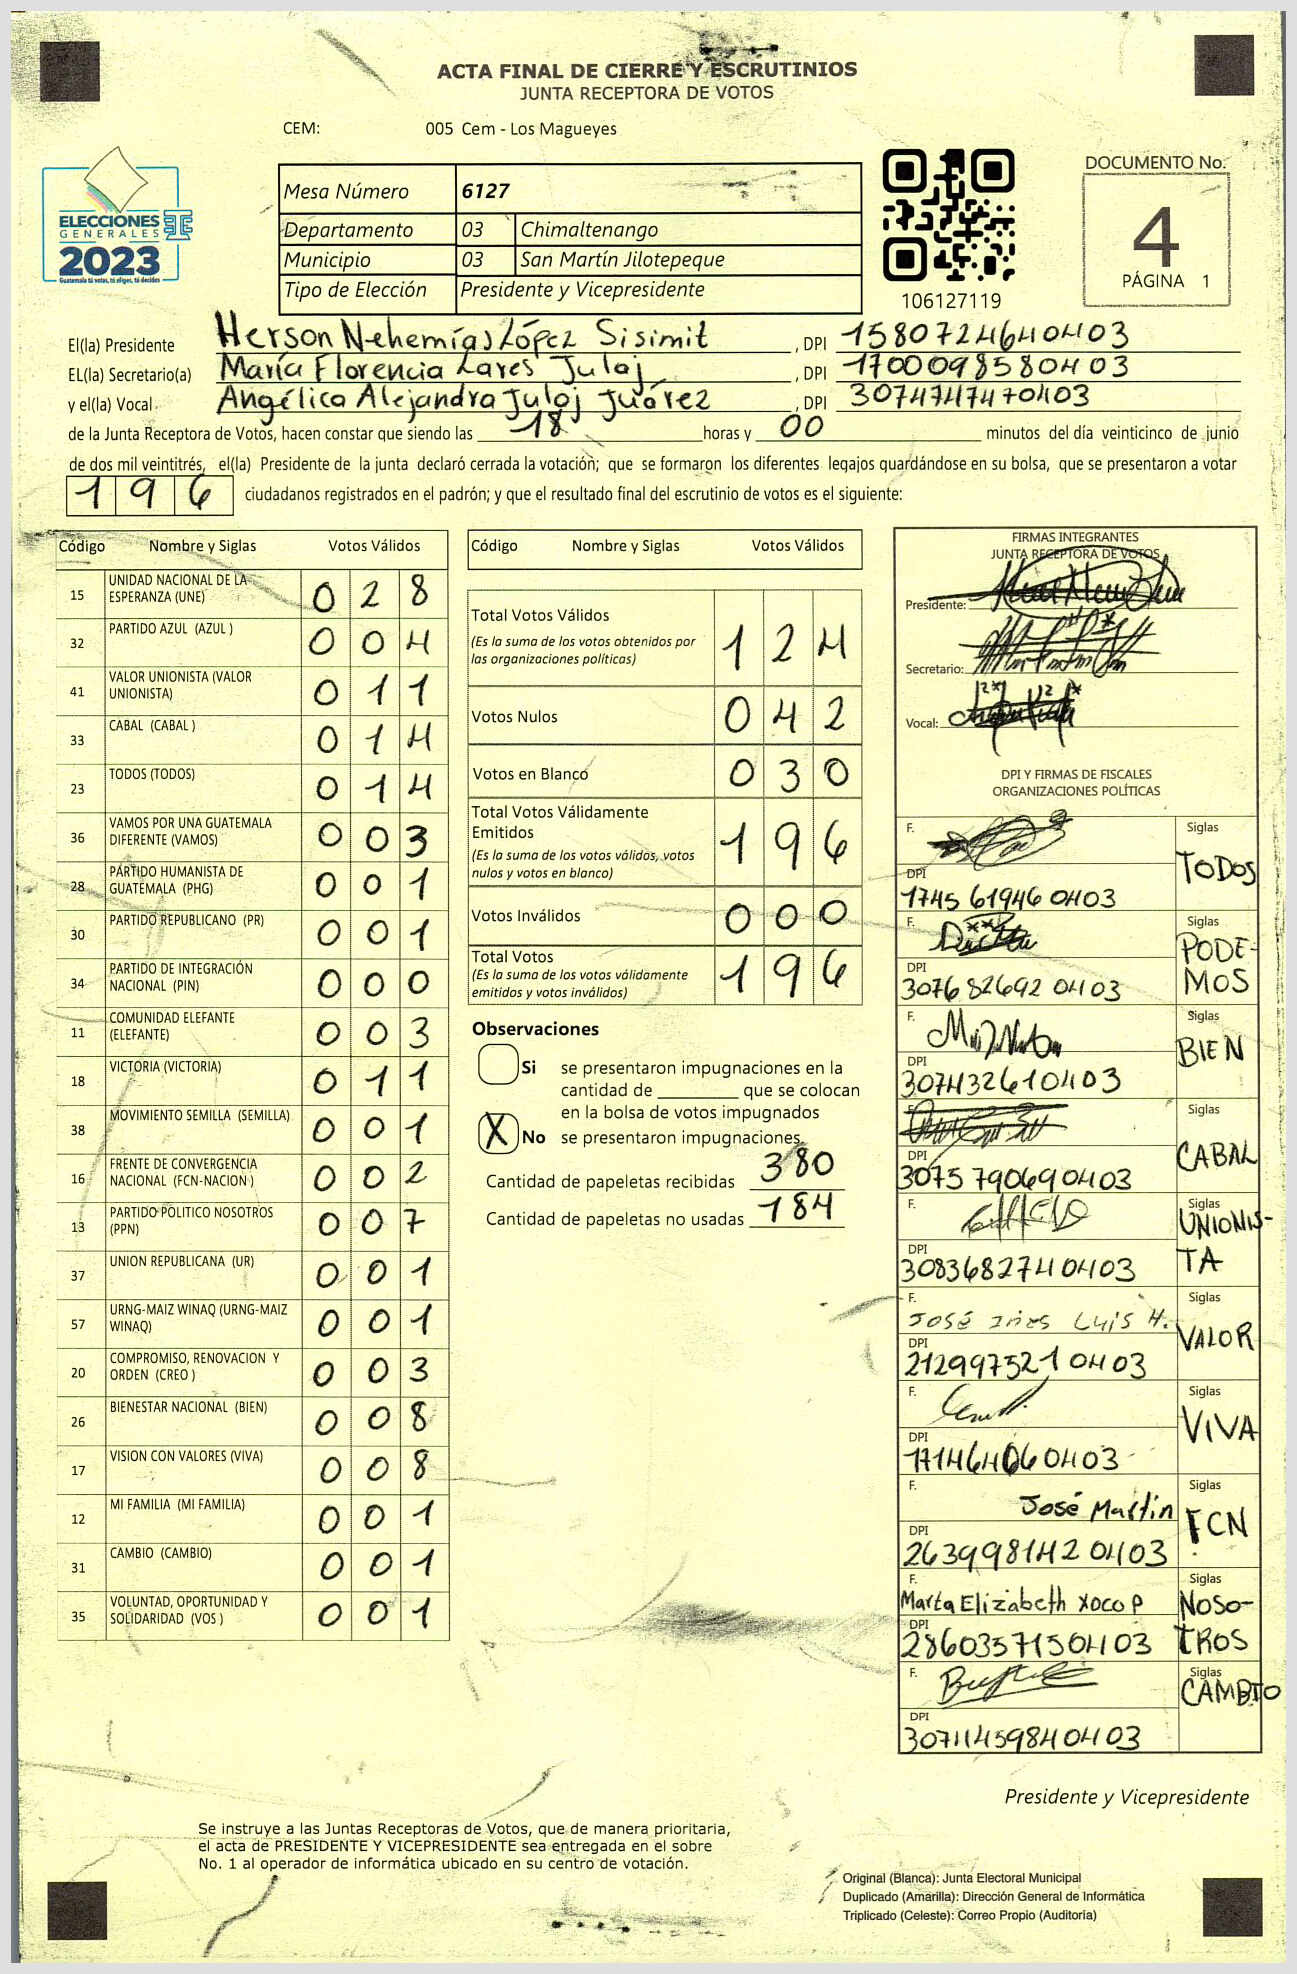 ACTA FINAL DE CIERRE Y ESCRUTINIOS
JUNTA RECEPTORA DE VOTOS
CEM: 005 Cem - Los Magueyes
ELECCIONES
GENERALES
2023
Guatemala tú votas, tú eliges, tú decides
Mesa Número 6127
Departamento 03 Chimaltenango
Municipio 03 San Martín Jilotepeque
Tipo de Elección Presidente y Vicepresidente
106127119
DOCUMENTO No.
4
PÁGINA 1
El(la) Presidente Herson Nehemías López Sisimit, DPI 1580724640403
EL(la) Secretario(a) María Florencia Lares Juloj, DPI 1700098580403
y el(la) Vocal Angélica Alejandra Juloj Juárez, DPI 3074747470403
de la Junta Receptora de Votos, hacen constar que siendo las 18 horas y 00 minutos del día veinticinco de junio
de dos mil veintitrés, el(la) Presidente de la junta declaró cerrada la votación; que se formaron los diferentes legajos guardándose en su bolsa, que se presentaron a votar
196 ciudadanos registrados en el padrón; y que el resultado final del escrutinio de votos es el siguiente:
Código Nombre y Siglas Votos Válidos
15 UNIDAD NACIONAL DE LA ESPERANZA (UNE) 028
32 PARTIDO AZUL (AZUL ) 004
41 VALOR UNIONISTA (VALOR UNIONISTA) 011
33 CABAL (CABAL ) 014
23 TODOS (TODOS) 014
36 VAMOS POR UNA GUATEMALA DIFERENTE (VAMOS) 003
28 PARTIDO HUMANISTA DE GUATEMALA (PHG) 001
30 PARTIDO REPUBLICANO (PR) 001
34 PARTIDO DE INTEGRACIÓN NACIONAL (PIN) 000
11 COMUNIDAD ELEFANTE (ELEFANTE) 003
18 VICTORIA (VICTORIA) 011
38 MOVIMIENTO SEMILLA (SEMILLA) 001
16 FRENTE DE CONVERGENCIA NACIONAL (FCN-NACION ) 002
13 PARTIDO POLITICO NOSOTROS (PPN) 007
37 UNION REPUBLICANA (UR) 001
57 URNG-MAIZ WINAQ (URNG-MAIZ WINAQ) 001
20 COMPROMISO, RENOVACION Y ORDEN (CREO ) 003
26 BIENESTAR NACIONAL (BIEN) 008
17 VISION CON VALORES (VIVA) 008
12 MI FAMILIA (MI FAMILIA) 001
31 CAMBIO (CAMBIO) 001
35 VOLUNTAD, OPORTUNIDAD Y SOLIDARIDAD (VOS ) 001
Código Nombre y Siglas Votos Válidos
Total Votos Válidos 124
(Es la suma de los votos obtenidos por
las organizaciones políticas)
Votos Nulos 042
Votos en Blanco 030
Total Votos Válidamente
Emitidos 196
(Es la suma de los votos válidos, votos
nulos y votos en blanco)
Votos Inválidos 000
Total Votos 196
(Es la suma de los votos válidamente
emitidos y votos inválidos)
Observaciones
Si se presentaron impugnaciones en la
cantidad de ______ que se colocan
en la bolsa de votos impugnados
X No se presentaron impugnaciones
Cantidad de papeletas recibidas 380
Cantidad de papeletas no usadas 184
FIRMAS INTEGRANTES
JUNTA RECEPTORA DE VOTOS
Presidente:
Secretario:
Vocal:
DPI Y FIRMAS DE FISCALES
ORGANIZACIONES POLÍTICAS
F. Siglas
TODOS
DPI
1745 61946 0403
F. Siglas
PODE-
MOS
DPI
3076 82692 0403
F. Siglas
BIEN
DPI
307432610403
F. Siglas
CABAL
DPI
3075 790690403
F. Siglas
UNIONIS-
TA
DPI
3083682740403
F. José Ines Luis H. Siglas
VALOR
DPI
212997521 0403
F. Siglas
VIVA
DPI
F. José Martin Siglas
FCN
DPI
263998142 0403
F. Marta Elizabeth Xoco P Siglas
NOSO-
TROS
DPI
2860357150403
F. Siglas
CAMBIO
DPI
3071145984 0403
Presidente y Vicepresidente
Se instruye a las Juntas Receptoras de Votos, que de manera prioritaria,
el acta de PRESIDENTE Y VICEPRESIDENTE sea entregada en el sobre
No. 1 al operador de informática ubicado en su centro de votación.
Original (Blanca): Junta Electoral Municipal
Duplicado (Amarilla): Dirección General de Informática
Triplicado (Celeste): Correo Propio (Auditoria)